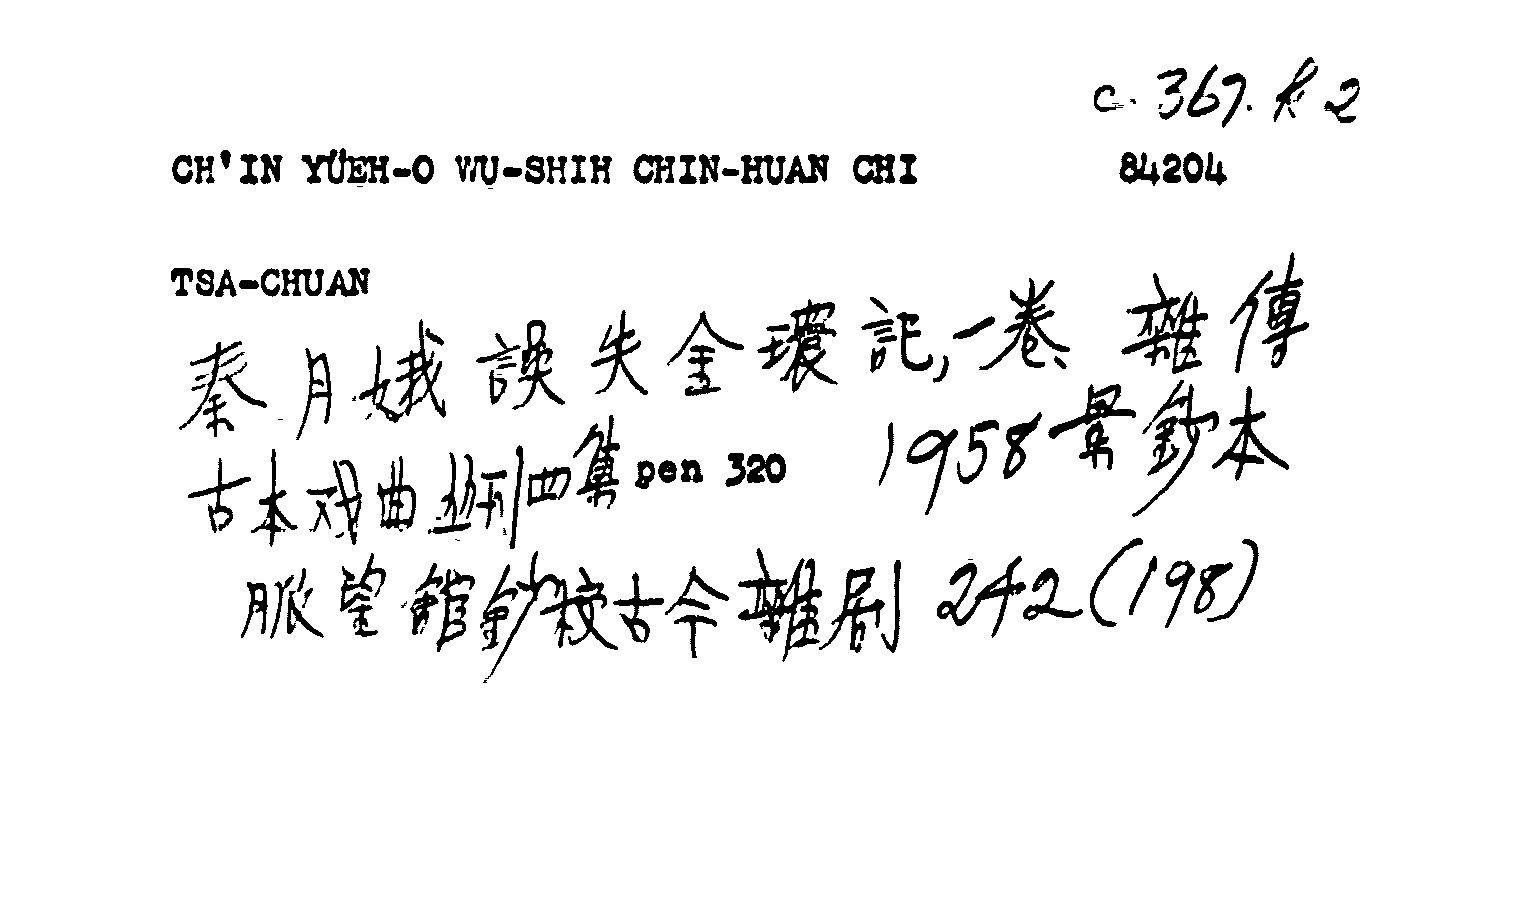 c. 367. k 2
CH'IN YÜEH-O WU-SHIH CHIN-HUAN CHI 84204
TSA-CHUAN
秦月娥誤失金環記,一卷、雜傳
古本戏曲丛刊四集 pen 320 1958景鈔本
脈望館鈔校古今雜剧 242(198)